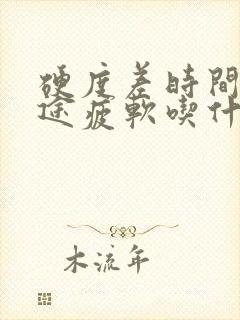 硬度差時間
途疲軟喫什
木流年